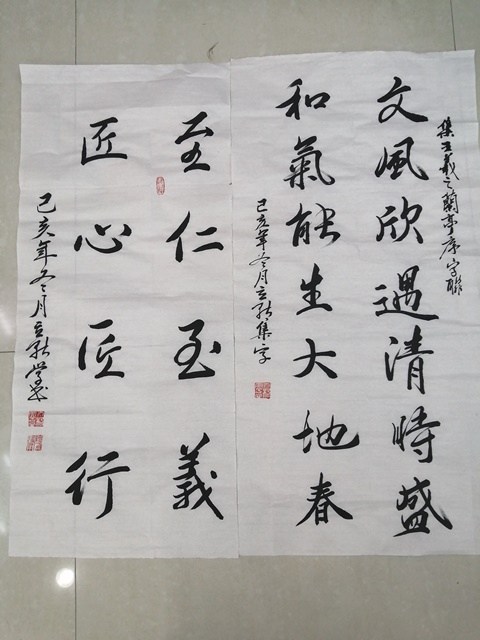 集王羲之蘭亭序字聯
文風欣遇清時盛
和氣能生大地春
己亥年冬月立集字
至仁至義
匠心匠行
己亥年冬月立學书